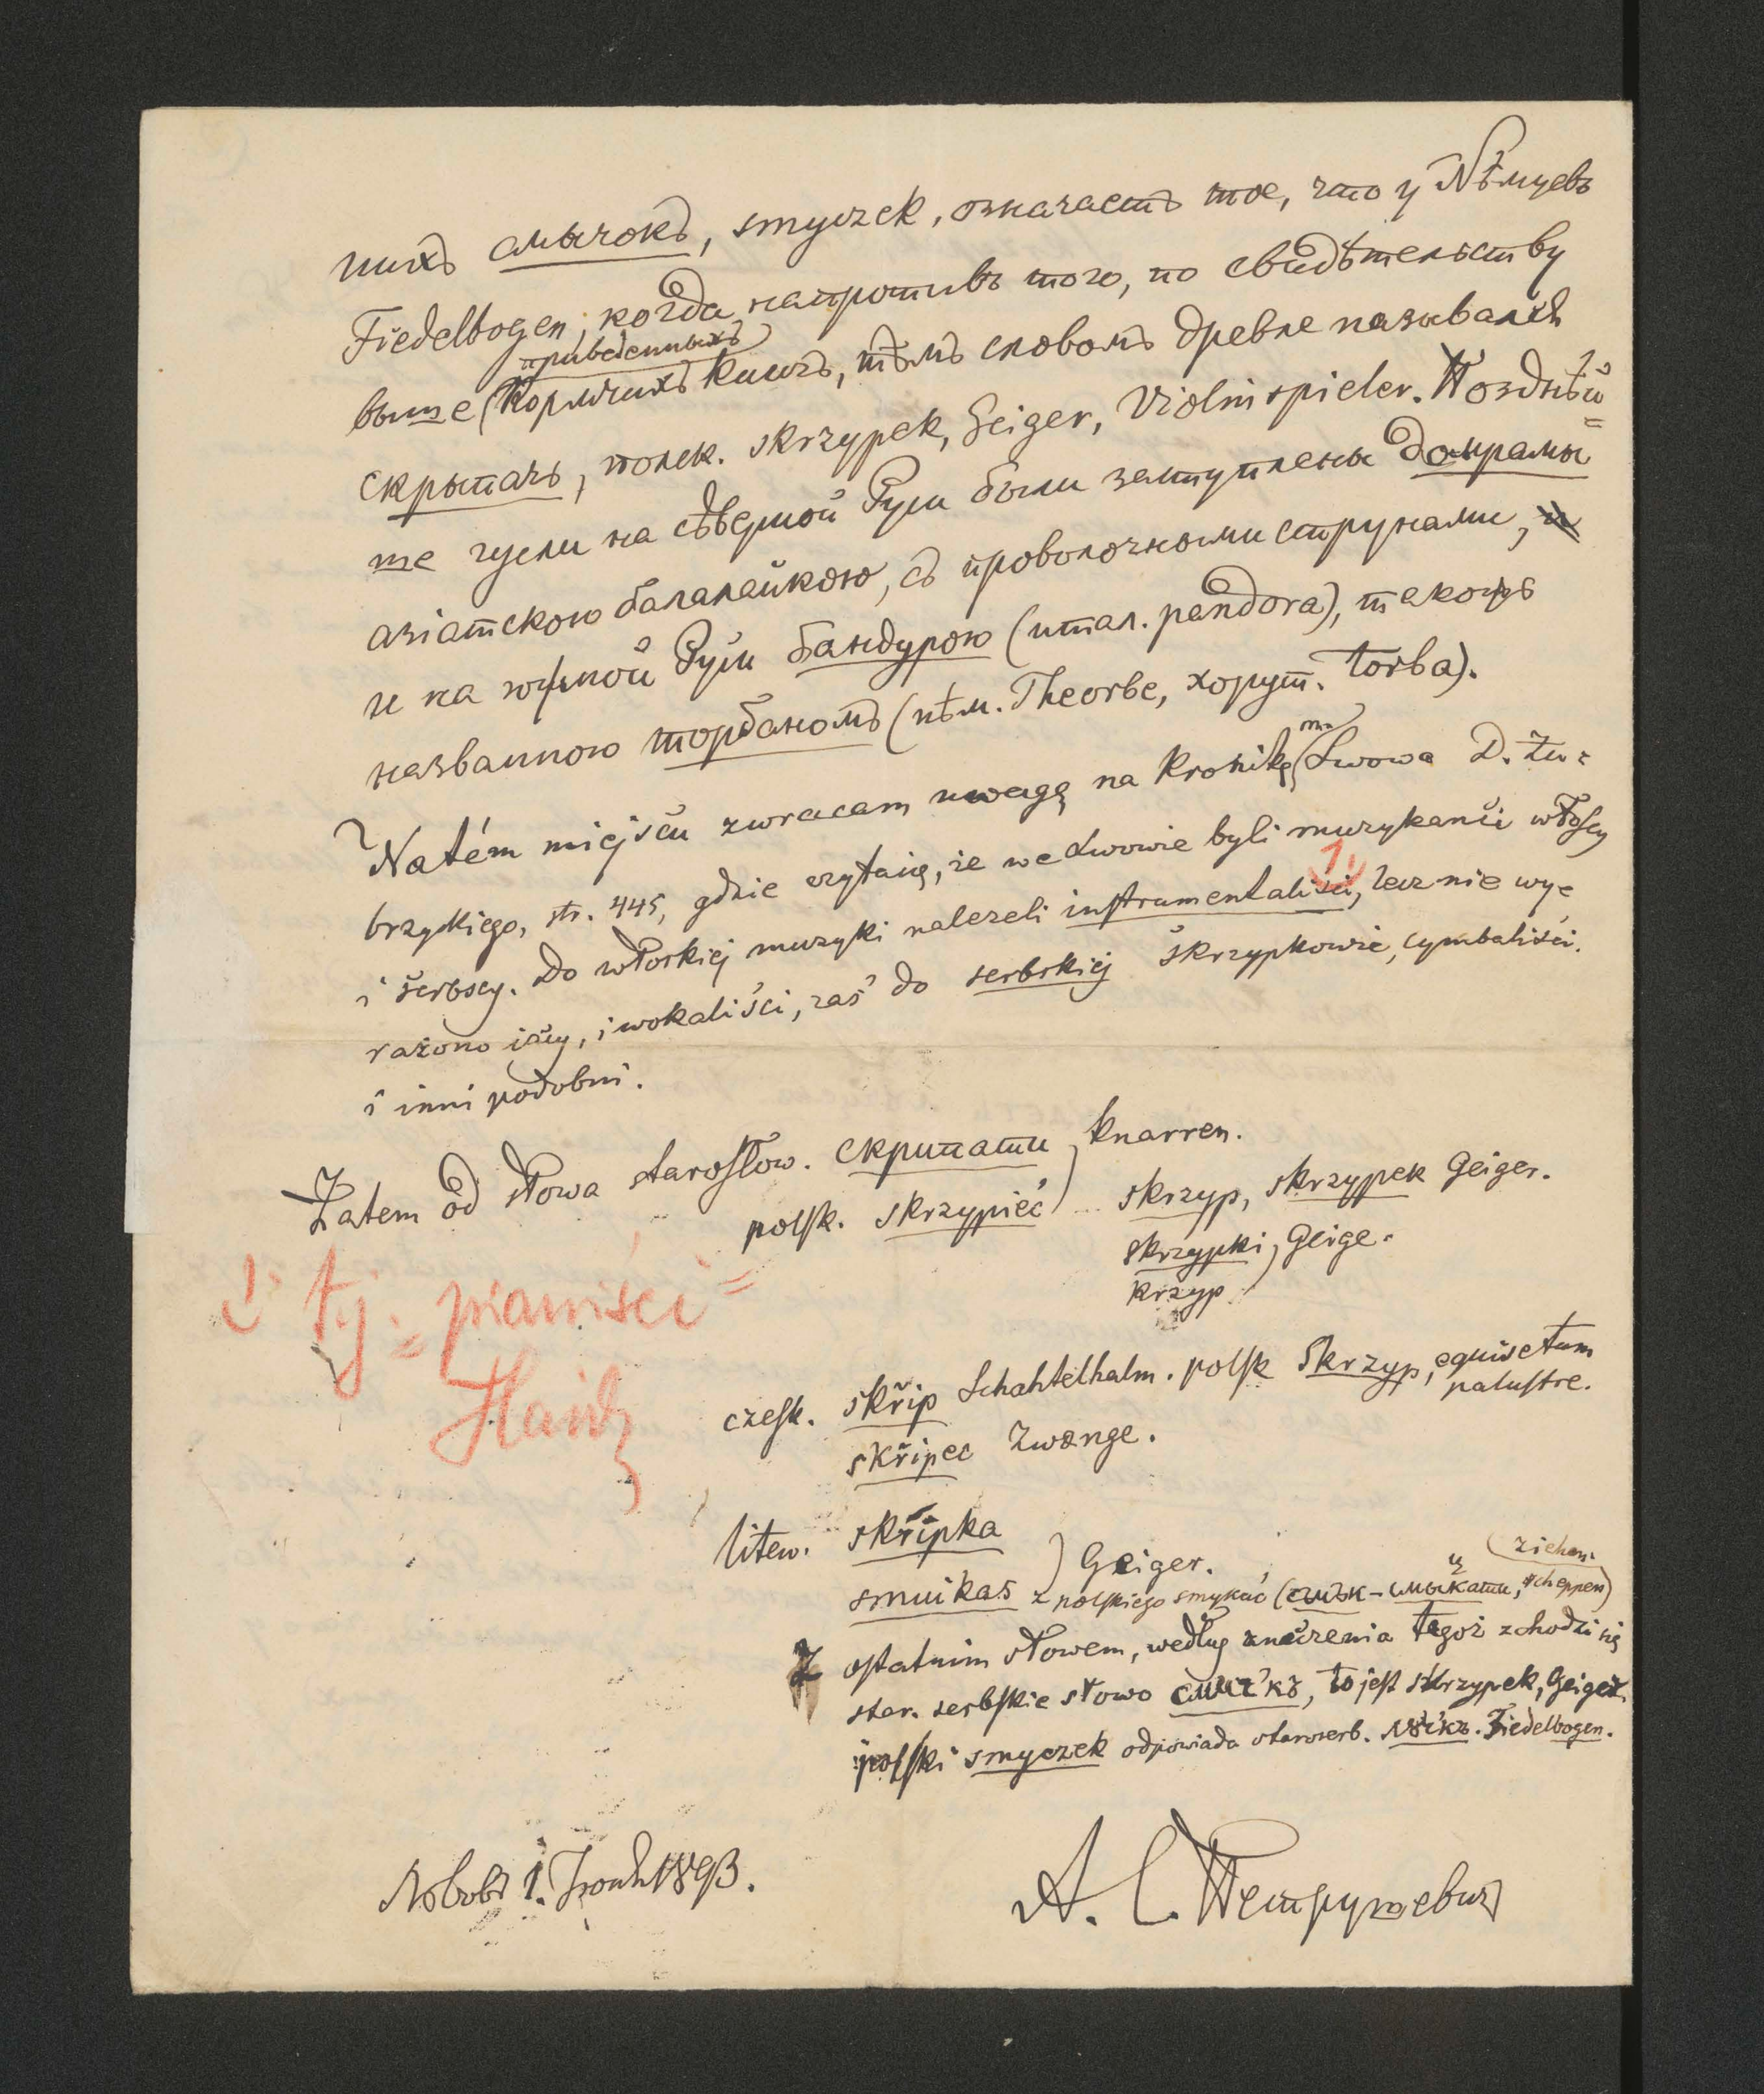 нихъ смычокъ, smyczek, означаетъ тое, что у Нѣмцевъ
Fiedelbogen, когда напротивъ того, по свидѣтельству
приведенныхъ
выше Кормчихъ книгъ, тѣмъ словомъ древле назывался
скрыпачь, польск. skrzypek, Geiger, Violinspieler. Позднѣй=
ше гусли на сѣверной Руси были заступлены домрами
азіатскою балалайкою, съ проволочными струнами,
и на южной Руси бандурою (итал. pandora), такожъ
названною торбаномъ (нѣм. Theorbe, хорут. torba).
Na tém miejscu zwracam uwagę na Kronikę m. Lwowa D. Zu=
brzyckiego, str. 445, gdzie czytaię, że we Lwowie byli muzykanći włoscy
i serbscy. Do włoskiej muzyki należeli instrumentaliści, 1) lecz nie wy=
rażono iacy, i wokaliści, zaś do serbskiej skrzypkowie, cymbaliści.
i inni podobni.
Zatem od słowa starosłow. скрипати) knarren.
polsk. skrzypieć) skrzyp, skrzypek Geiger.
skrzypki) Geige.
krzyp
1) tj. = pianiści =
czesk. skřip Schahtelhalm. polsk skrzyp, equisetum
palustre.
skřipec Zwange.
litew. skřipka
smuikas) Geiger.
ziehen
z polskiego smykać (смък-смыкати, scheppen)
Z ostatnim słowem, według znaczenia tegoż zchodzi się
star. serbskie słowo смычкъ, to jest skrzypek, Geiger.
polski smyczek odpowiada staroserb. лѫчкъ. Fiedelbogen.
Львовъ 1. Іюнь 1893.
А. С. Петрушевичъ